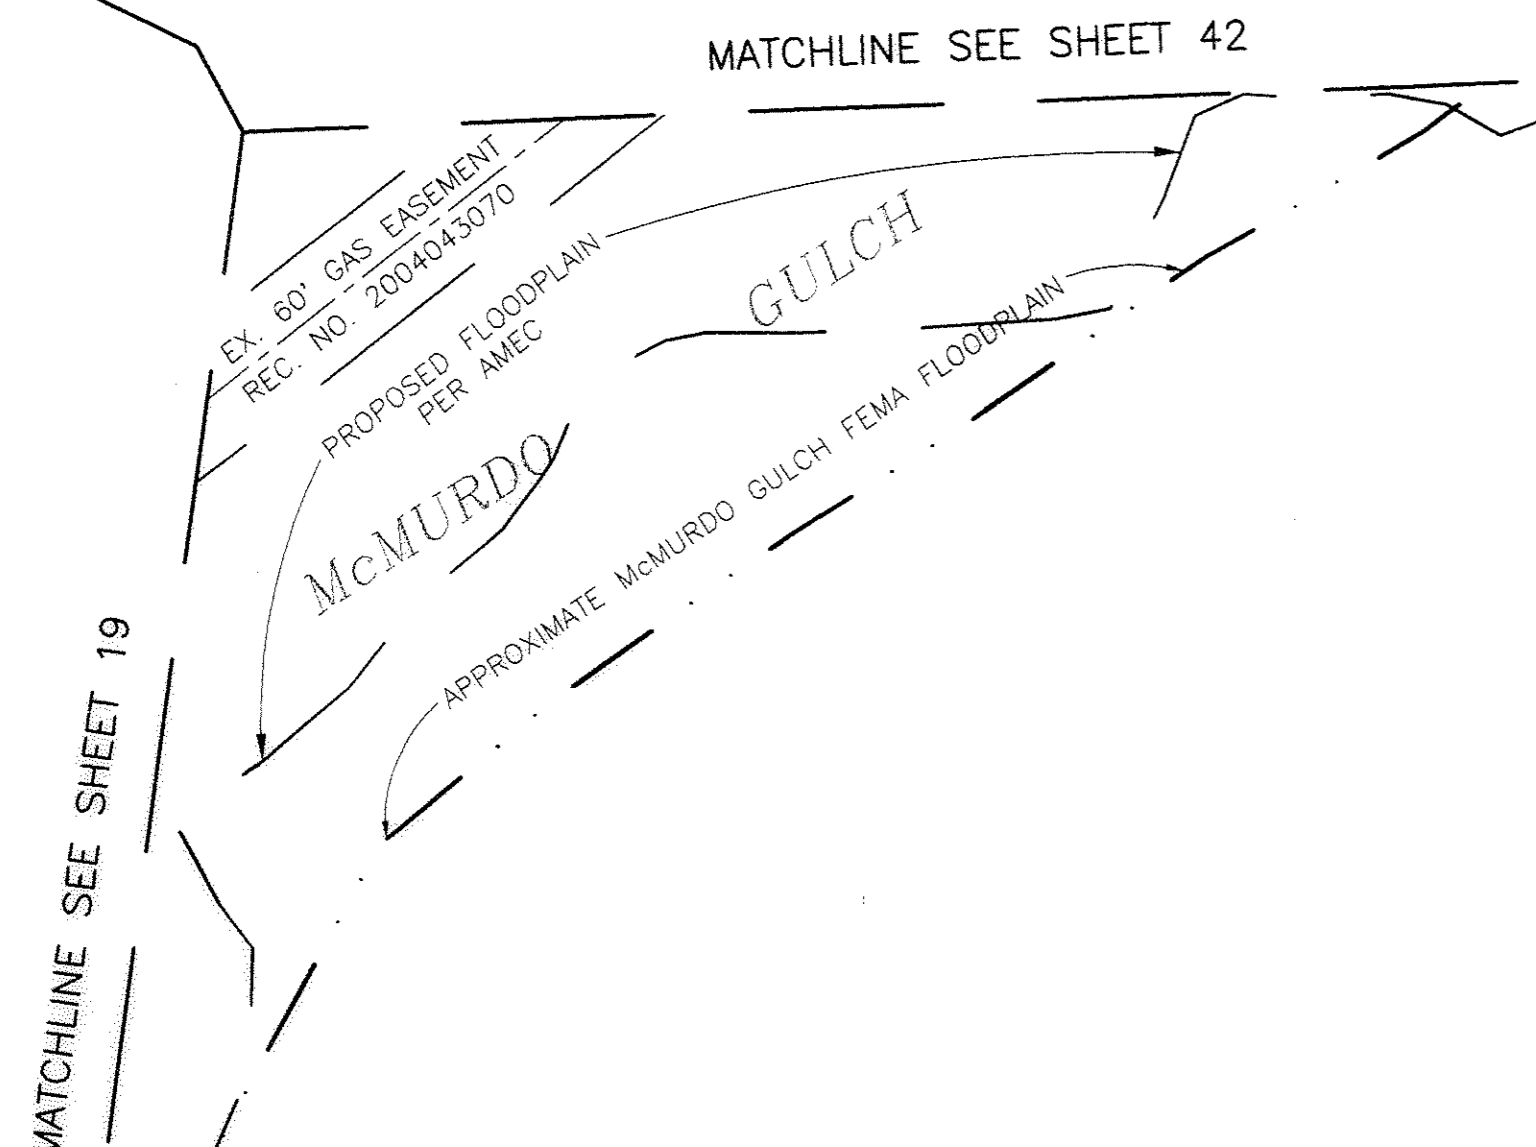 MATCHLINE SEE SHEET 42
EX. 60' GAS EASEMENT
REC. NO. 2004043070
PROPOSED FLOODPLAIN
PER AMEC
McMURDO GULCH
APPROXIMATE McMURDO GULCH FEMA FLOODPLAIN
MATCHLINE SEE SHEET 19